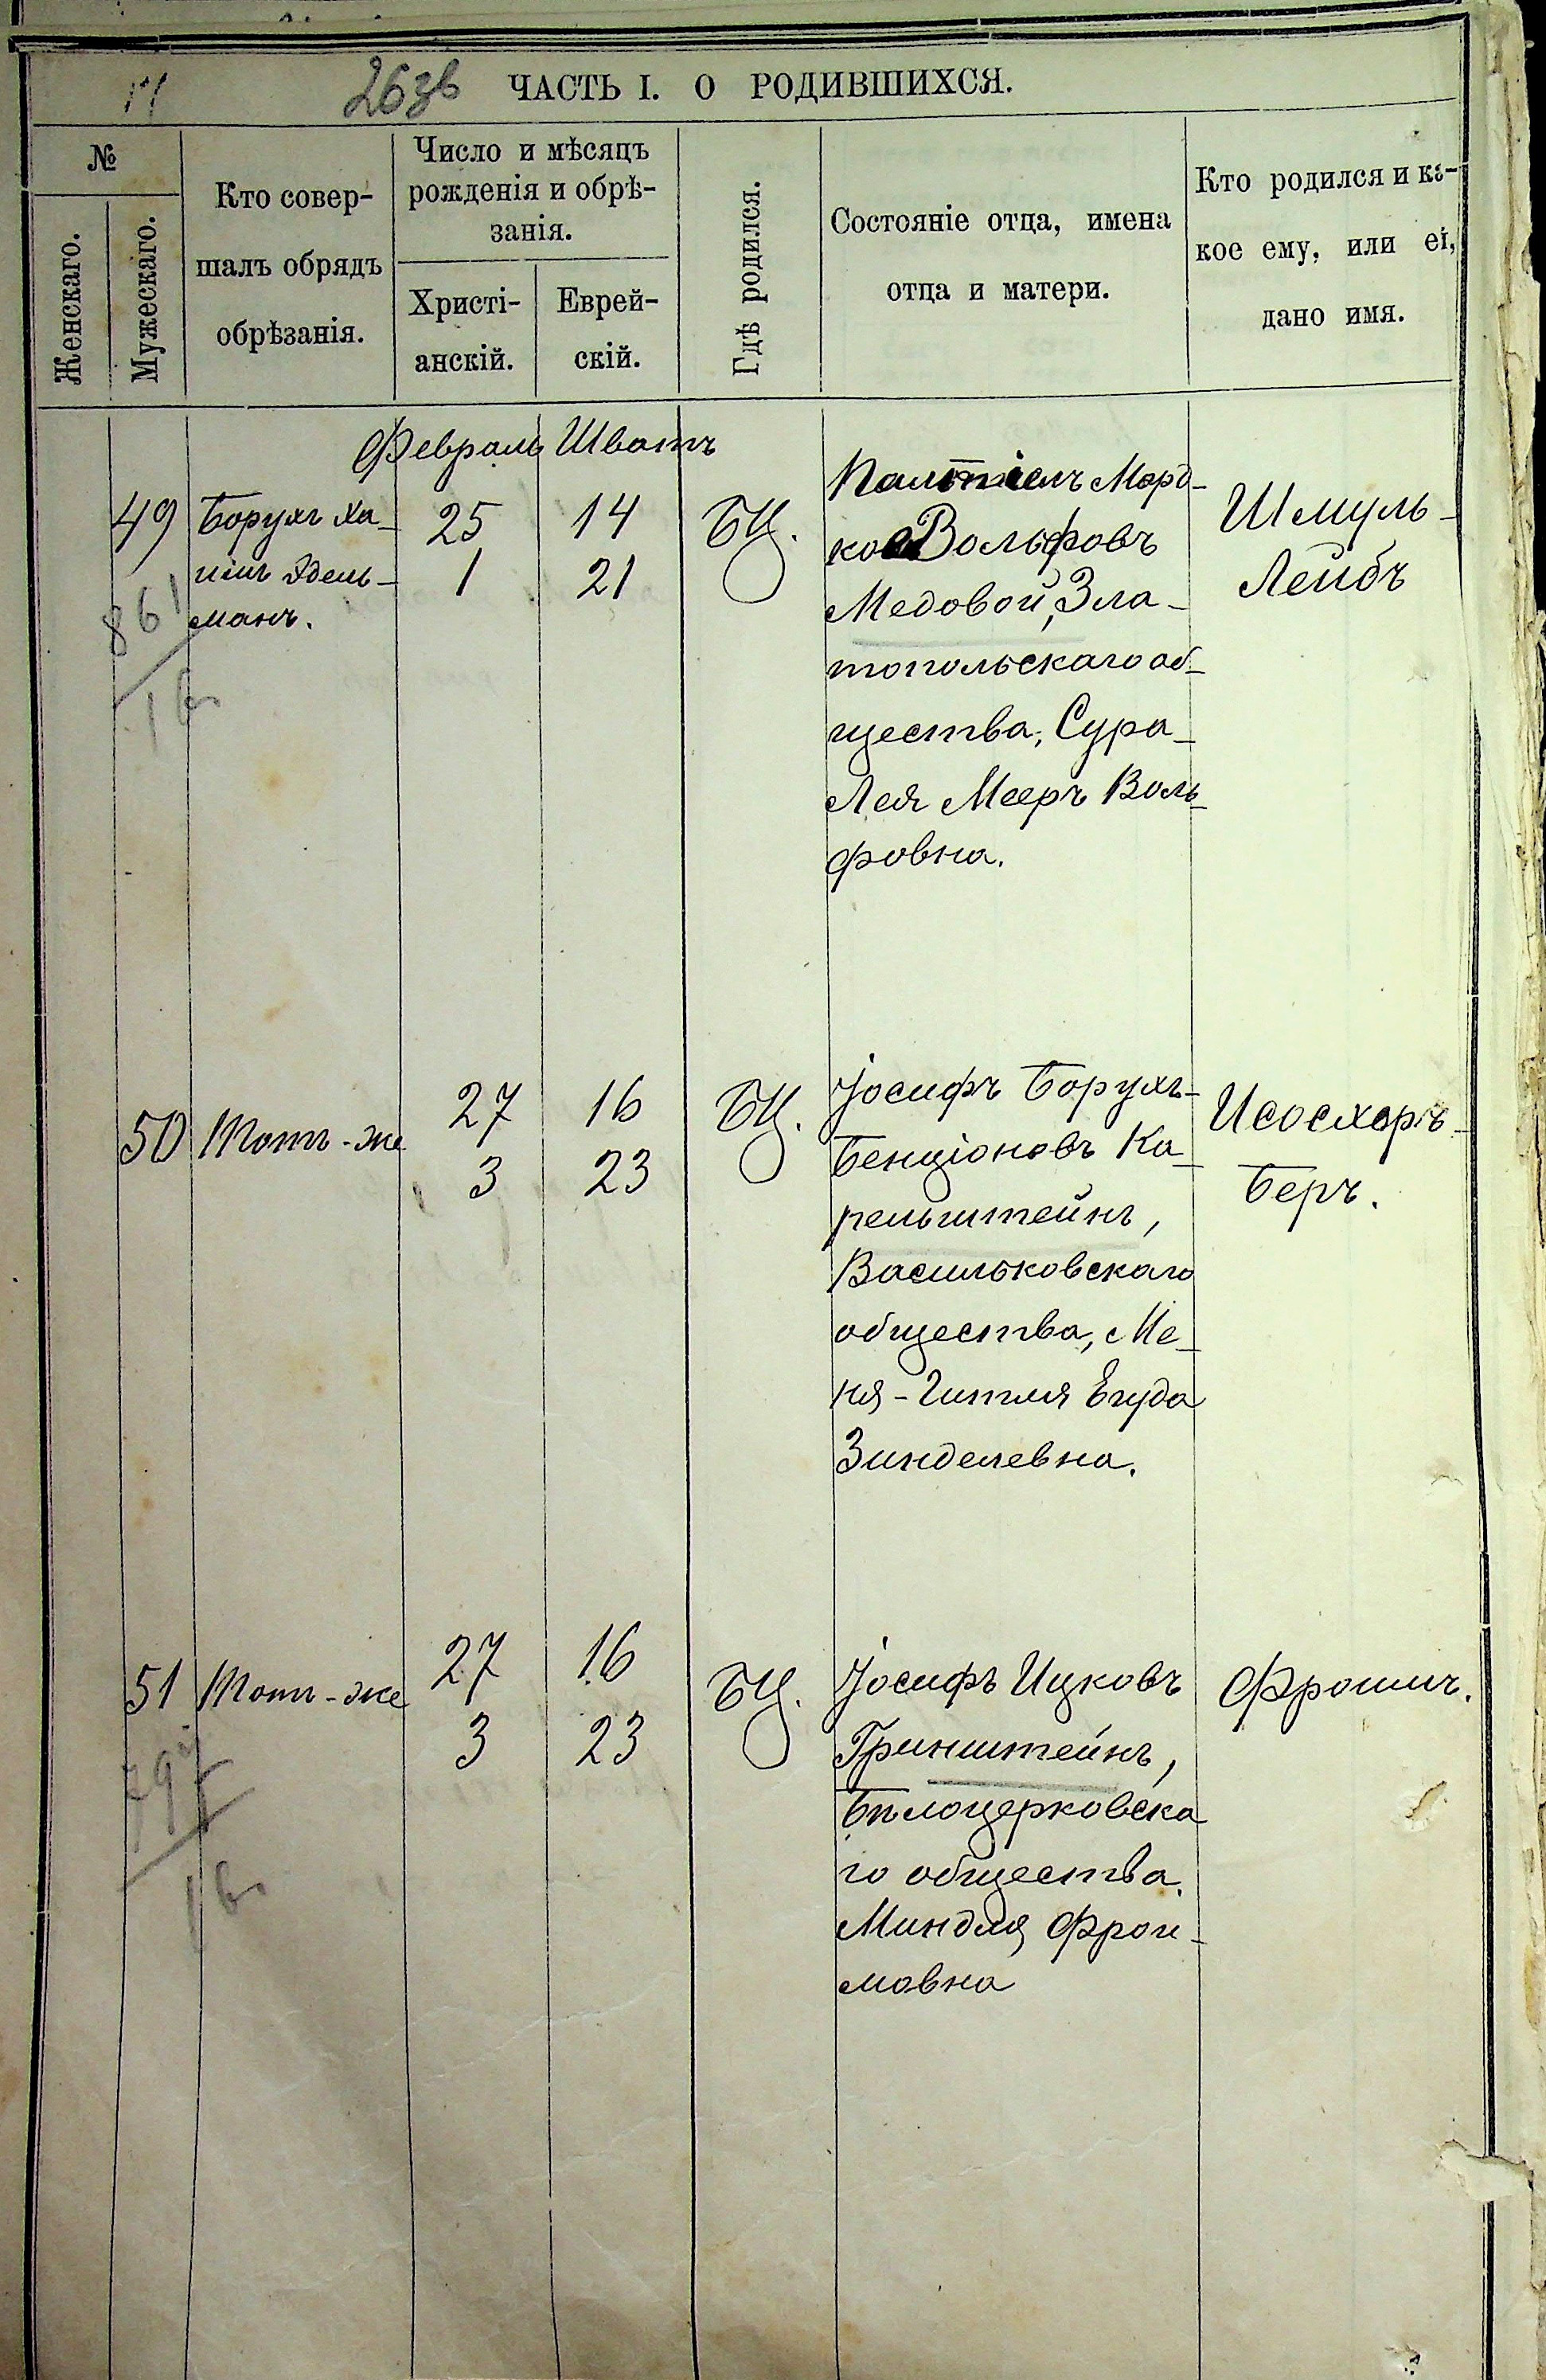 263б ЧАСТЬ I. О РОДИВШИХСЯ.
№
Женскаго.
Мужескаго.
Кто совер-
шалъ обрядъ
обрѣзанія.
Число и мѣсяцъ
рожденія и обрѣ-
занія.
Христі-
анскій.
Еврей-
скій.
Гдѣ родился.
Состояніе отца, имена
отца и матери.
Кто родился и ка-
кое ему, или ей,
дано имя.
Февраль Шватъ
49
Борухъ Ха-
имъ Эдель-
манъ.
25 14
1 21
БЦ.
Палтіелъ Морд-
ко Вольфовъ
Медовой, Зла-
топольскаго об-
щества, Сура-
Лея Мееръ Воль-
фовна.
Шмуль-
Лейбъ
861
50 Тотъ-же
27 16
3 23
БЦ.
Іосифъ Борухъ-
Бенціоновъ Ка-
пельштейнъ,
Васильковскаго
общества, Ме-
ня-Гитля Егуда
Зинделевна.
Исосхоръ-
Беръ.
51 Тотъ-же
27 16
3 23
БЦ.
Іосифъ Ицковъ
Гринштейнъ,
Бѣлоцерковска
го общества.
Миндля Фрои-
мовна
Фроимъ.